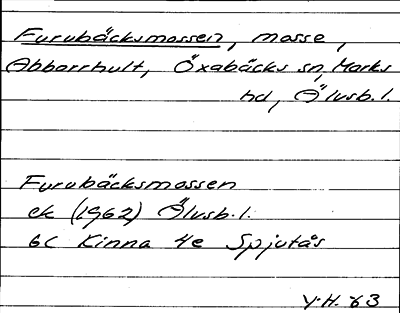 Furubäcksmossen, mosse,
Abborrhult, Öxabäcks sn, Marks
hd, Älvsb.l.
Furubäcksmossen
ek (1962) Älvsb.l.
6C Kinna 4e Spjutås
Y.H. 63